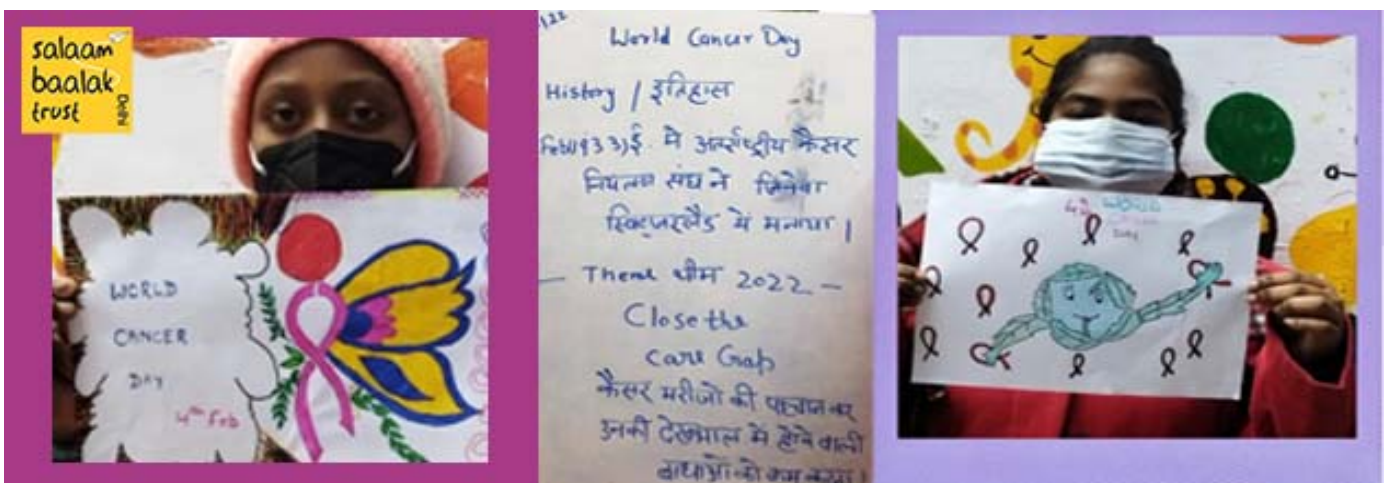 salaam
baalak
trust
Delhi
WORLD
CANCER
DAY
4th Feb
World Cancer Day
History / इतिहास
Feb 1933 ई. मे अंर्तराष्ट्रीय कैंसर
संघ ने जिनेवा
स्विट्जरलैंड में मनाया |
— Theme थीम 2022 —
Close the
care Gap
कैंसर मरीजो की पहचान कर
उनकी देखभाल में होने वाली
बाधाओं को कम करना |
WORLD